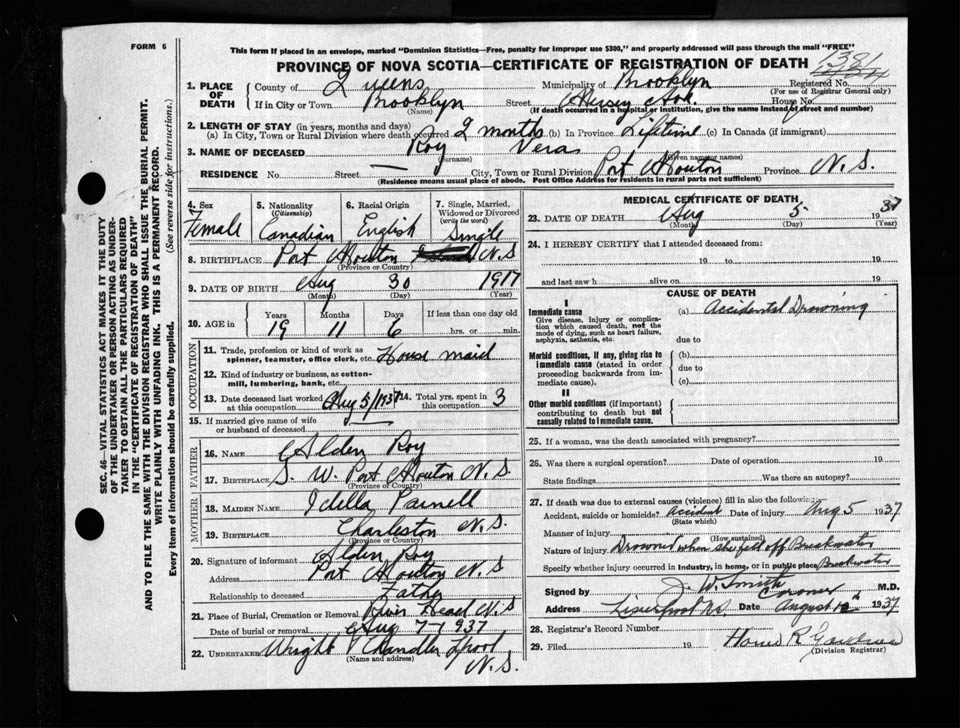 FORM 6
This form if placed in an envelope, marked "Dominion Statistics—Free, penalty for improper use $300," and properly addressed will pass through the mail "FREE"
PROVINCE OF NOVA SCOTIA—CERTIFICATE OF REGISTRATION OF DEATH
1. PLACE OF DEATH
County of Queens Municipality of Brooklyn Registered No.
(For use of Registrar General only)
If in City or Town Brooklyn Street House No.
(Name) (If death occurred in a hospital or institution, give the name instead of street and number)
2. LENGTH OF STAY (in years, months and days)
(a) In City, Town or Rural Division where death occurred 2 months (b) In Province Lifetime (c) In Canada (if immigrant)
3. NAME OF DECEASED Roy Vera
(Surname) (Given name or names)
RESIDENCE No. — Street City, Town or Rural Division Port Mouton Province N.S.
(Residence means usual place of abode. Post Office Address for residents in rural parts not sufficient)
4. Sex Female
5. Nationality (Citizenship) Canadian
6. Racial Origin English
7. Single, Married, Widowed or Divorced (write the word) Single
8. BIRTHPLACE Port Mouton N.S
(Province or Country)
9. DATE OF BIRTH Aug 30 1917
(Month) (Day) (Year)
10. AGE in Years 19 Months 11 Days 6 If less than one day old hrs. or min.
OCCUPATION
11. Trade, profession or kind of work as spinner, teamster, office clerk, etc. House maid
12. Kind of industry or business, as cotton-mill, lumbering, bank, etc.
13. Date deceased last worked at this occupation Aug 5/1937 14. Total yrs. spent in this occupation 3
15. If married give name of wife or husband of deceased
FATHER
16. NAME Alden Roy
17. BIRTHPLACE S. W. Port Mouton N.S
(Province or Country)
MOTHER
18. MAIDEN NAME Idella Parnell
19. BIRTHPLACE Charleston N.S.
(Province or Country)
20. Signature of informant Alden Roy
Address Port Mouton N.S
Relationship to deceased Father
21. Place of Burial, Cremation or Removal River Head N.S
Date of burial or removal Aug 7-1937
22. UNDERTAKER Wright Chandler Lpool N.S.
(Name and address)
MEDICAL CERTIFICATE OF DEATH
23. DATE OF DEATH Aug 5 1937
(Month) (Day) (Year)
24. I HEREBY CERTIFY that I attended deceased from:
19 to 19
and last saw h alive on 19
CAUSE OF DEATH
I
Immediate cause (a) Accidental Drowning
Give disease, injury or complication which caused death, not the mode of dying, such as heart failure, asphyxia, asthenia, etc. due to
Morbid conditions, if any, giving rise to immediate cause (stated in order proceeding backwards from immediate cause). (b) due to (c)
II
Other morbid conditions (if important) contributing to death but not causally related to immediate cause.
25. If a woman, was the death associated with pregnancy?
26. Was there a surgical operation? Date of operation 19
State findings Was there an autopsy?
27. If death was due to external causes (violence) fill in also the following:
Accident, suicide or homicide? accident Date of injury Aug 5 1937
(State which)
Manner of injury
(How sustained)
Nature of injury Drowned when she fell off Breakwater
Specify whether injury occurred in industry, in home, or in public place Breakwater
Signed by J. W. Smith Coroner M.D.
Address Liverpool N.S. Date August 1937
28. Registrar's Record Number
29. Filed 19
(Division Registrar)
SEC. 46—VITAL STATISTICS ACT MAKES IT THE DUTY
OF THE UNDERTAKER OR PERSON ACTING AS UNDERTAKER TO OBTAIN ALL THE PARTICULARS REQUIRED
IN THE "CERTIFICATE OF REGISTRATION OF DEATH"
AND TO FILE THE SAME WITH THE DIVISION REGISTRAR WHO SHALL ISSUE THE BURIAL PERMIT.
WRITE PLAINLY WITH UNFADING INK. THIS IS A PERMANENT RECORD.
Every item of information should be carefully supplied. (See reverse side for instructions.)